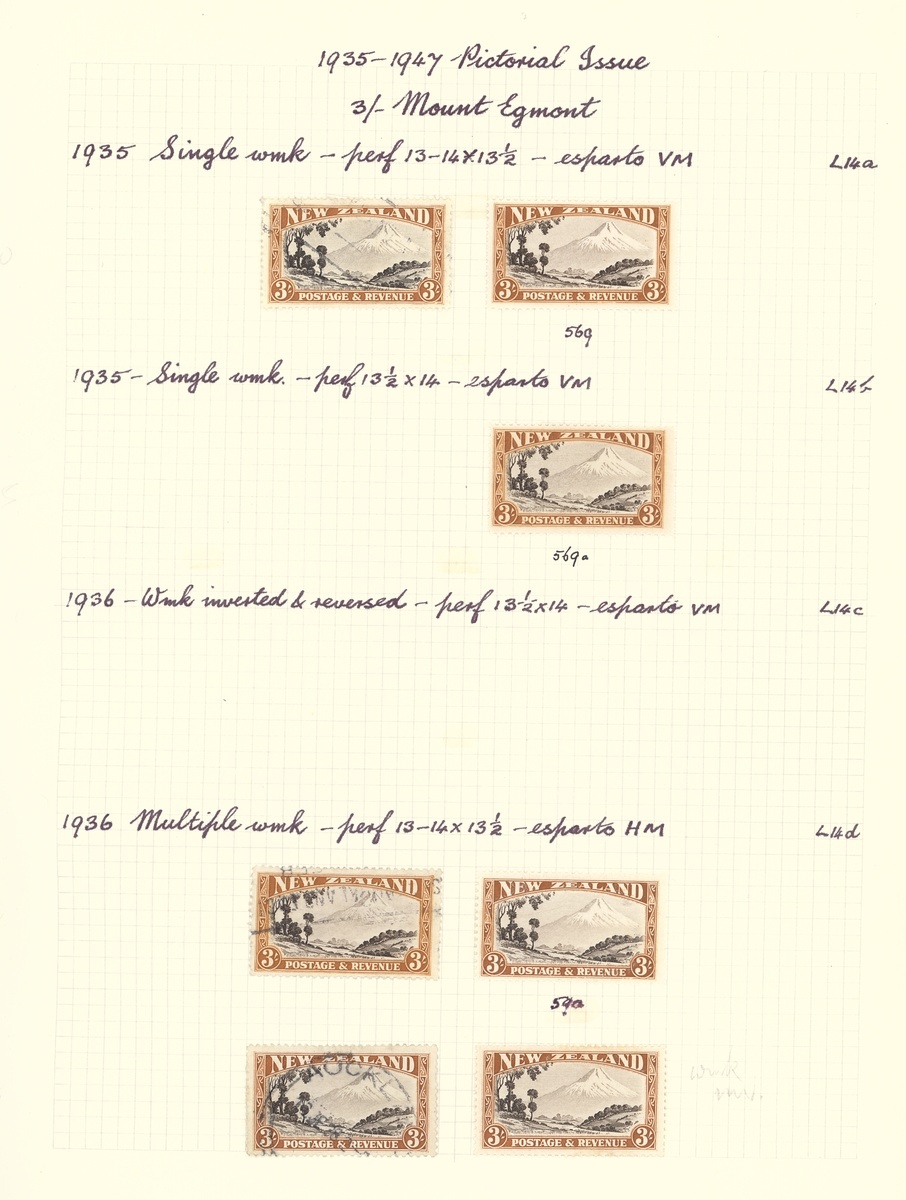 1935-1947 Pictorial Issue
3/- Mount Egmont
1935 Single wmk - perf 13-14x13½ - esparto VM L14a
NEW ZEALAND NEW ZEALAND
3/- POSTAGE & REVENUE 3/- 3/- POSTAGE & REVENUE 3/-
569
1935 - Single wmk. - perf 13½ x 14 - esparto VM L14b
NEW ZEALAND
3/- POSTAGE & REVENUE 3/-
569a
1936 - Wmk inverted & reversed - perf 13½x14 - esparto VM L14c
1936 Multiple wmk - perf 13-14x 13½ - esparto HM L14d
NEW ZEALAND NEW ZEALAND
3/- POSTAGE & REVENUE 3/- 3/- POSTAGE & REVENUE 3/-
59a
NEW ZEALAND NEW ZEALAND
AUCKL
wmk
inv.
3/- POSTAGE & REVENUE 3/- 3/- POSTAGE & REVENUE 3/-